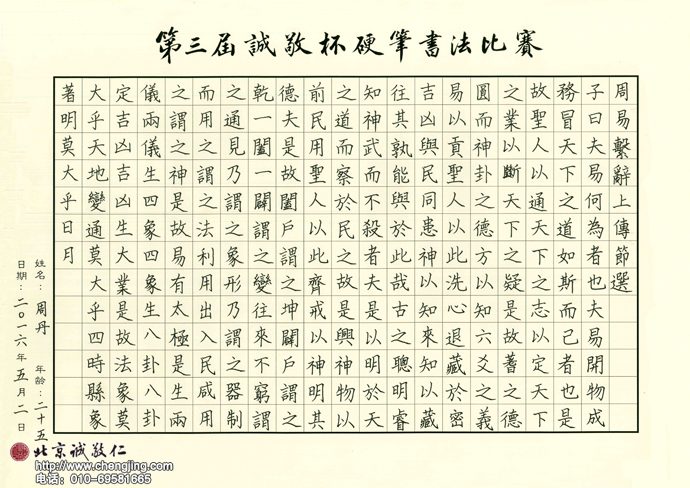 第三屆誠敬杯硬筆書法比賽
周易繫辭上傳節選
子曰夫易何為者也夫易開物成
務冒天下之道如斯而已者也是
故聖人以通天下之志以定天下
之業以斷天下之疑是故蓍之德
圓而神卦之德方以知六爻之義
易以貢聖人以此洗心退藏於密
吉凶與民同患神以知來知以藏
往其孰能與於此哉古之聰明睿
知神武而不殺者夫是以明於天
之道而察於民之故是興神物以
前民用聖人以此齊戒以神明其
德夫是故闔戶謂之坤闢戶謂之
乾一闔一闢謂之變往來不窮謂
之通見乃謂之象形乃謂之器制
而用之謂之法利用出入民咸用
之謂之神是故易有太極是生兩
儀兩儀生四象四象生八卦八卦
定吉凶吉凶生大業是故法象莫
大乎天地變通莫大乎四時縣象
著明莫大乎日月
姓名：周丹 年龄：二十五
日期：二〇一六年五月二日
北京誠敬仁
http://www.chengjing.com
电话：010-69581665